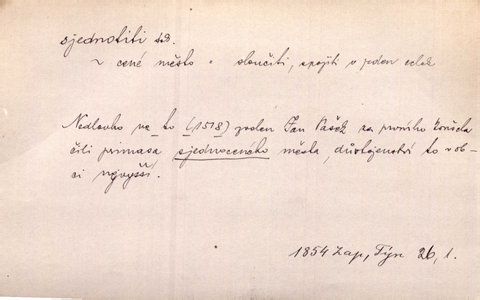 sjednotiti dok.
~ cené město = sloučiti, spojiti v jeden celek
Nedlouho na to (1518) zvolen Jan Pašek za prvního konšela
čili primasa sjednoceného města, důstojenství to v ob-
ci nejvyšší.
1854 Zap, Týn 26, 1.